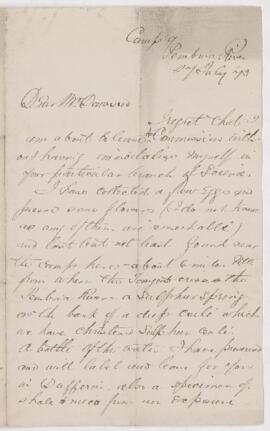 Camp 9
Pembina River
27 July '73
Dear Mr Dawson
I regret that I
am about to leave the Commission with-
out having immortalized myself in
your particular branch of Science.
I have collected a few Eggs and
pressed some flowers (I do not know
as any of them are remarkable)
and last but not least found near
the camp here - about 6 miles
from where the crosses the
Pembina River - a Sulphur spring
on the bank of a deep which
we have christened Sulphur
A bottle of the water I have procured
and will label and leave for you
in Dufferin. also a specimen of
shale from an exposure